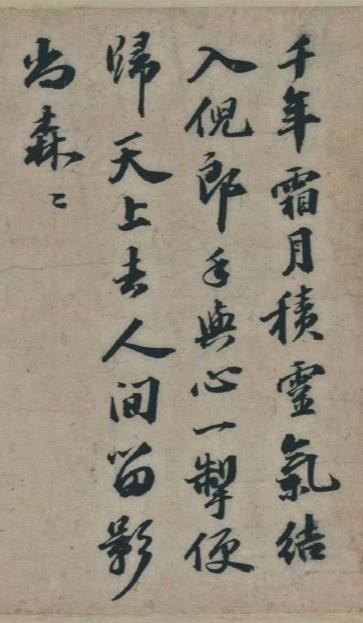 千年霜月積靈氣結
入倪郎手與心一掣便
歸天上去人間留影
尚森〻